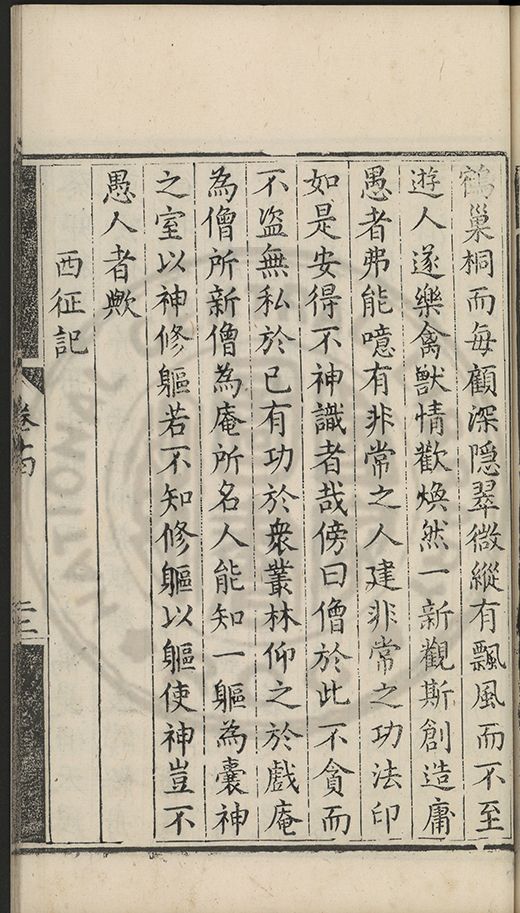 鶴巢桐而每顧深隠翠微縱有飄風而不至
遊人遂樂禽獸情歡煥然一新觀斯創造庸
愚者弗能噫有非常之人建非常之功法印
如是安得不神識者哉傍曰僧於此不貪而
不盜無私於已有功於衆叢林仰之於戲庵
為僧所新僧為庵所名人能知一軀為囊神
之室以神修軀若不知修軀以軀使神豈不
愚人者歟
西征記